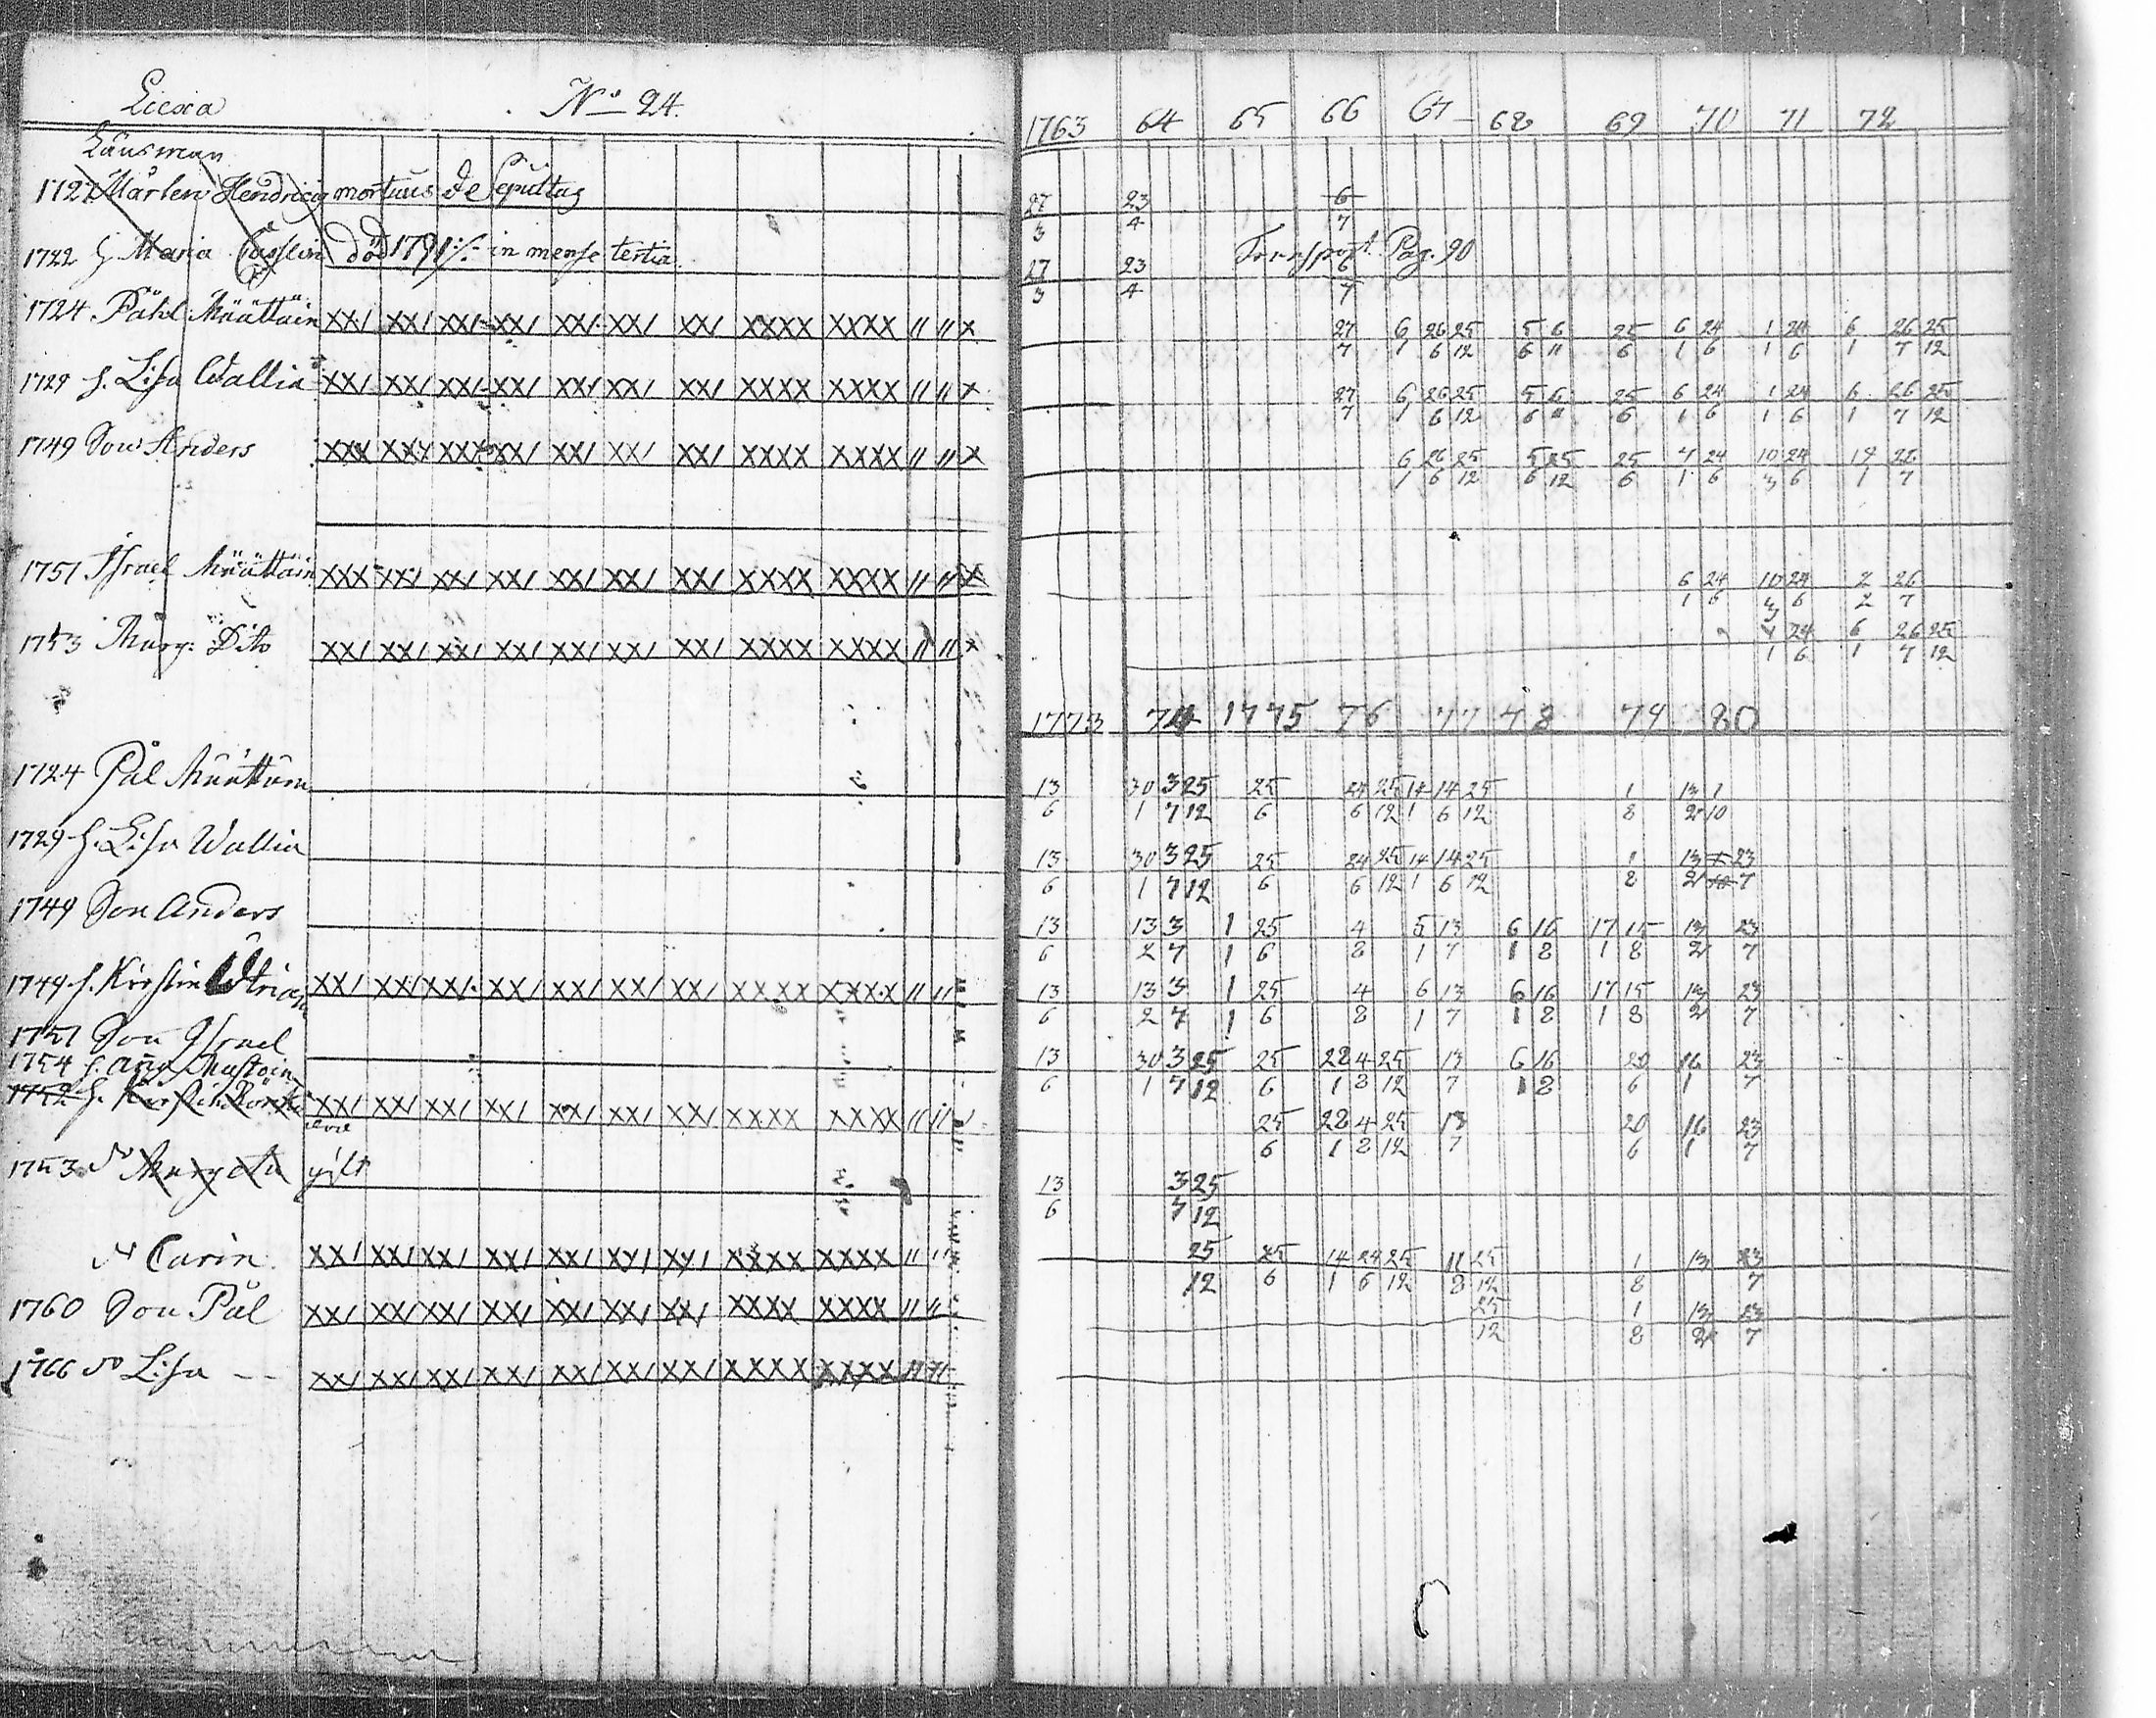 Liexa No 24.
Länsman
1727 Mårten Hendricss mortuus & Sepultus
1722 h Maria Cajslin Död 1791 in mense tertia
1724 Påhl Määttäin XX/ XX/ XX/ XX/ XX/ XX/ XX/ XXXX XXXX // // X
1729 h. Lisa Wallia XX/ XX/ XX/ XX/ XX/ XX/ XX/ XXXX XXXX // // X
1749 Son Anders XXX XXX XXX XX/ XX/ XX/ XX/ XXXX XXXX // // X
1751 Israel Määttäin XXX XX/ XX/ XX/ XX/ XX/ XX/ XXXX XXXX // // X
1753 Marg: Dito XX/ XX/ XX/ XX/ XX/ XX/ XX/ XXXX XXXX // // X
1724 Pål Määttäin
1729 h. Lisa Wallia
1749 Son Anders
1749 h. Kirstin XX/ XX/ XX/ XX/ XX/ XX/ XX/ XXXX XXXX // //
1751 Son Israel
1754 h. Anna
1752 h. Kirstin XX/ XX/ XX/ XX/ XX/ XX/ XX/ XXXX XXXX // //
1753 Marg gift
Carin XX/ XX/ XX/ XX/ XX/ XX/ XX/ XXXX XXXX // //
1760 Son Pål XX/ XX/ XX/ XX/ XX/ XX/ XX/ XXXX XXXX // //
1766 Lisa -- XX/ XX/ XX/ XX/ XX/ XX/ XX/ XXXX XXXX
1763 64 65 66 67 68 69 70 71 72
27 23 6
3 4 7
Transport Pag. 90
27 23 6
3 4 7
27 6 26 25 5 6 25 6 24 1 24 6 26 25
7 1 6 12 6 11 6 1 6 1 6 1 7 12
27 6 26 25 5 6 25 6 24 1 24 6 26 25
7 1 6 12 6 11 6 1 6 1 6 1 7 12
6 26 25 5 25 25 4 24 10 24 19 26
1 6 12 6 12 6 1 6 3 6 1 7
6 24 10 24 2 26
1 6 3 6 2 7
4 24 6 26 25
1 6 1 7 12
1773 74 1775 76 77 78 79 80
13 30 3 25 25 24 25 14 14 25 1 13 1
6 1 7 12 6 6 12 1 6 12 8 2 10
13 30 3 25 25 24 25 14 14 25 1 13 1 23
6 1 7 12 6 6 12 1 6 12 8 2 10 7
13 13 3 1 25 4 5 13 6 16 17 15 13 23
6 2 7 1 6 8 1 7 1 8 1 8 2 7
13 13 3 1 25 4 6 13 6 16 17 15 13 23
6 2 7 1 6 8 1 7 1 8 1 8 2 7
13 30 3 25 25 28 4 25 13 6 16 20 16 23
6 1 7 12 6 1 8 12 7 1 8 6 1 7
25 28 4 25 13 20 16 23
6 1 8 12 7 6 1 7
13 3 25
6 7 12
25 25 14 24 25 11 25 1 13 23
12 6 1 6 12 8 12 8 7
25 1 13 23
12 8 2 7